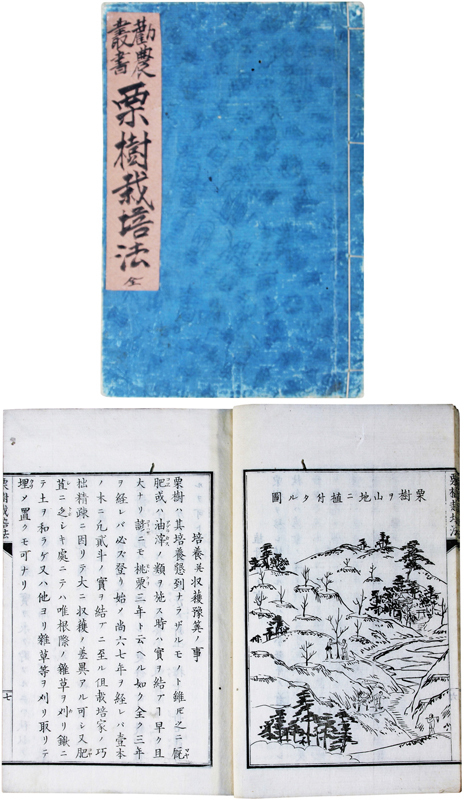 勸農
叢書
栗樹栽培法
全
栗樹栽培法
栗樹ヲ山地ニ植付タル圖
培養并収穫豫算ノ事
栗樹ハ其培養懇到ナラザルモノト雖𪜈之ニ厩
肥或ハ油滓ノ類ヲ施ス時ハ實ヲ結ブヿ早ク且
大ナリ諺ニモ桃栗三年ト云ヘル如ク全ク三年
ヲ経レバ必ズ登リ始メ尚六七年ヲ経レバ壹本
ノ木ニ凡貳斗ノ實ヲ結ブニ至ル但栽培家ノ巧
拙精疎ニ因リテ大ニ収穫ノ差異アル可シ又肥
苴ニ乏シキ處ニテハ唯根際ノ雜草ヲ刈リ鍬ニ
テ土ヲ和ラゲ又ハ他ヨリ雜草等ヲ刈リ取リテ
埋メ置クモ可ナリ
栗樹栽培法
七